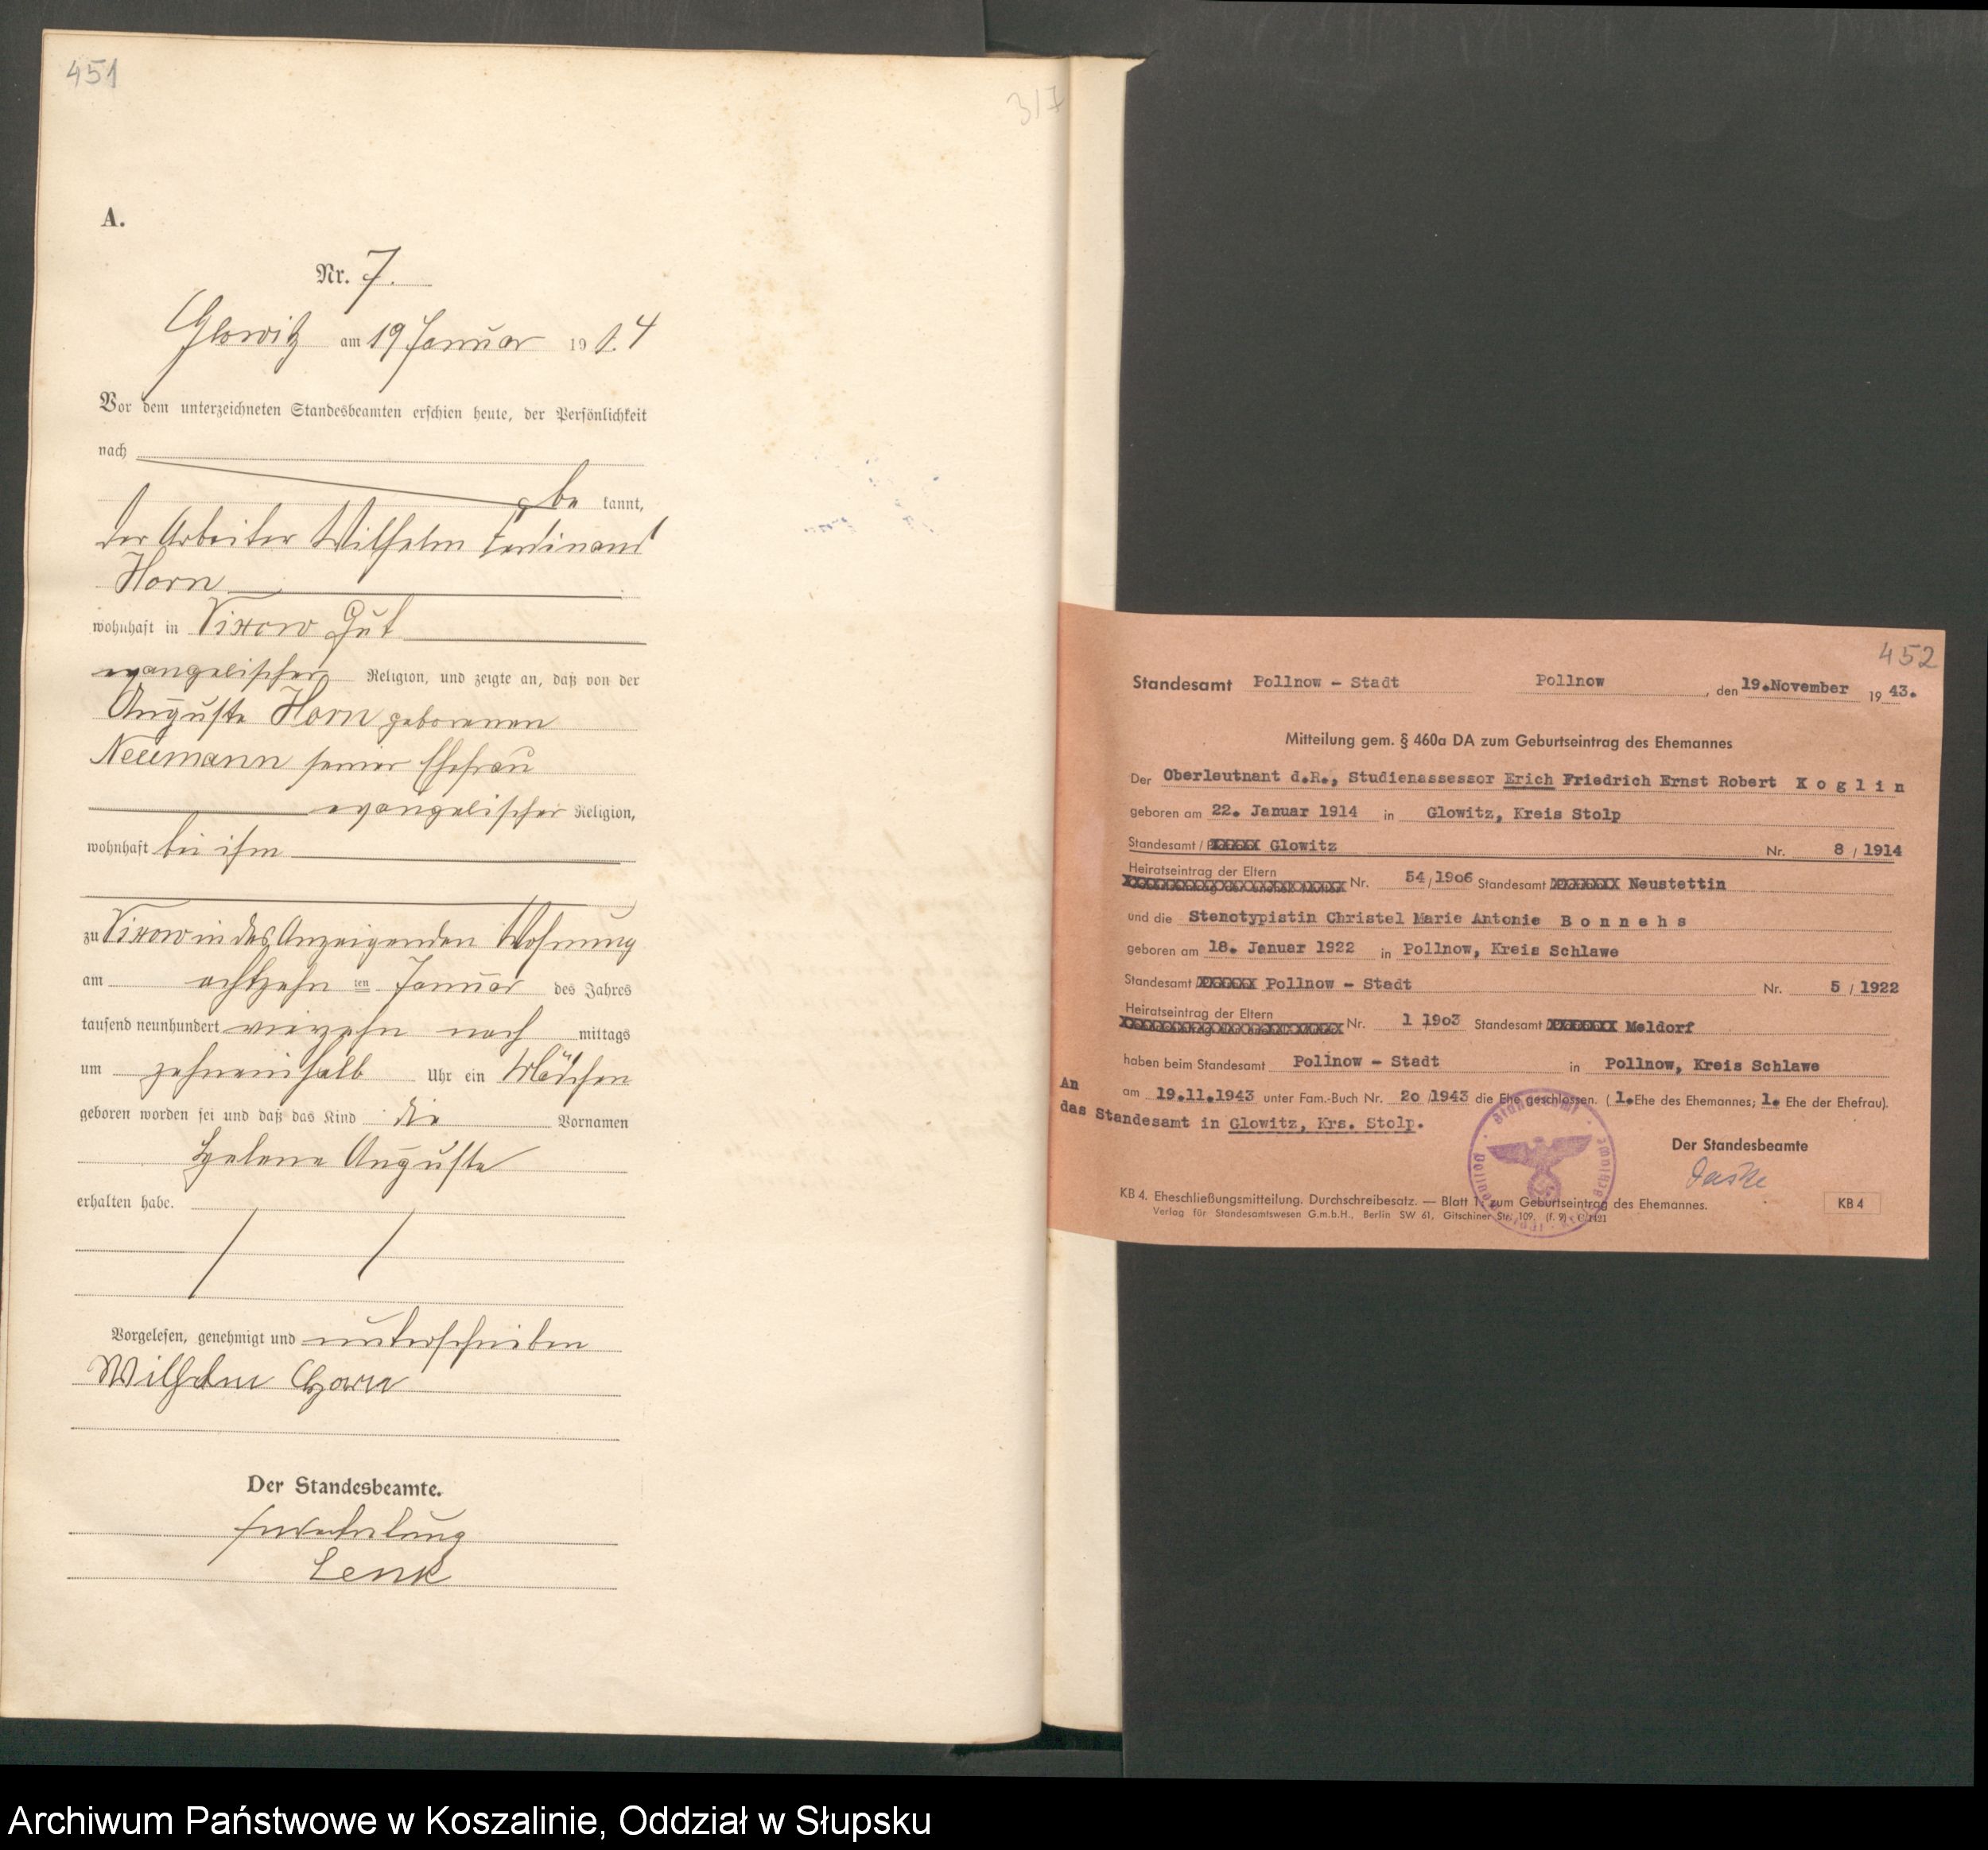 451
317
A.
Nr. 7.
Glowitz am 19 Januar 1914
Vor dem unterzeichneten Standesbeamten erschien heute, der Persönlichkeit
nach
be kannt,
der Arbeiter Wilhelm Ferdinand
Horn
wohnhaft in Vixow Gut
evangelischer Religion, und zeigte an, daß von der
Auguste Horn geborenen
Neumann seiner Ehefrau
evangelischer Religion,
wohnhaft bei ihm
zu Vixow in des Anzeigenden Wohnung
am achtzehn ten Januar des Jahres
tausend neunhundert vierzehn nach mittags
um zehneinhalb Uhr ein Mädchen
geboren worden sei und daß das Kind die Vornamen
Helene Auguste
erhalten habe.
Vorgelesen, genehmigt und unterschrieben
Wilhelm Horn
Der Standesbeamte.
In Vertretung
Lenk
452
Standesamt Pollnow - Stadt Pollnow, den 19.November 1943.
Mitteilung gem. § 460a DA zum Geburtseintrag des Ehemannes
Der Oberleutnant d.R., Studienassessor Erich Friedrich Ernst Robert K o g l i n
geboren am 22. Januar 1914 in Glowitz, Kreis Stolp
Standesamt / Glowitz Nr. 8 / 1914
Heiratseintrag der Eltern
Nr. 54/1906 Standesamt Neustettin
und die Stenotypistin Christel Marie Antonie B o n n e h s
geboren am 18. Januar 1922 in Pollnow, Kreis Schlawe
Standesamt Pollnow - Stadt Nr. 5 / 1922
Heiratseintrag der Eltern
Nr. 1 1903 Standesamt Meldorf
haben beim Standesamt Pollnow - Stadt in Pollnow, Kreis Schlawe
am 19.11.1943 unter Fam.-Buch Nr. 20 /1943 die Ehe geschlossen. (1.Ehe des Ehemannes; 1. Ehe der Ehefrau).
An
das Standesamt in Glowitz, Krs. Stolp.
Der Standesbeamte
KB 4. Eheschließungsmitteilung. Durchschreibesatz. — Blatt 1: zum Geburtseintrag des Ehemannes.
KB 4
Verlag für Standesamtswesen G.m.b.H., Berlin SW 61, Gitschiner Str. 109. (f. 9)
Archiwum Państwowe w Koszalinie, Oddział w Słupsku